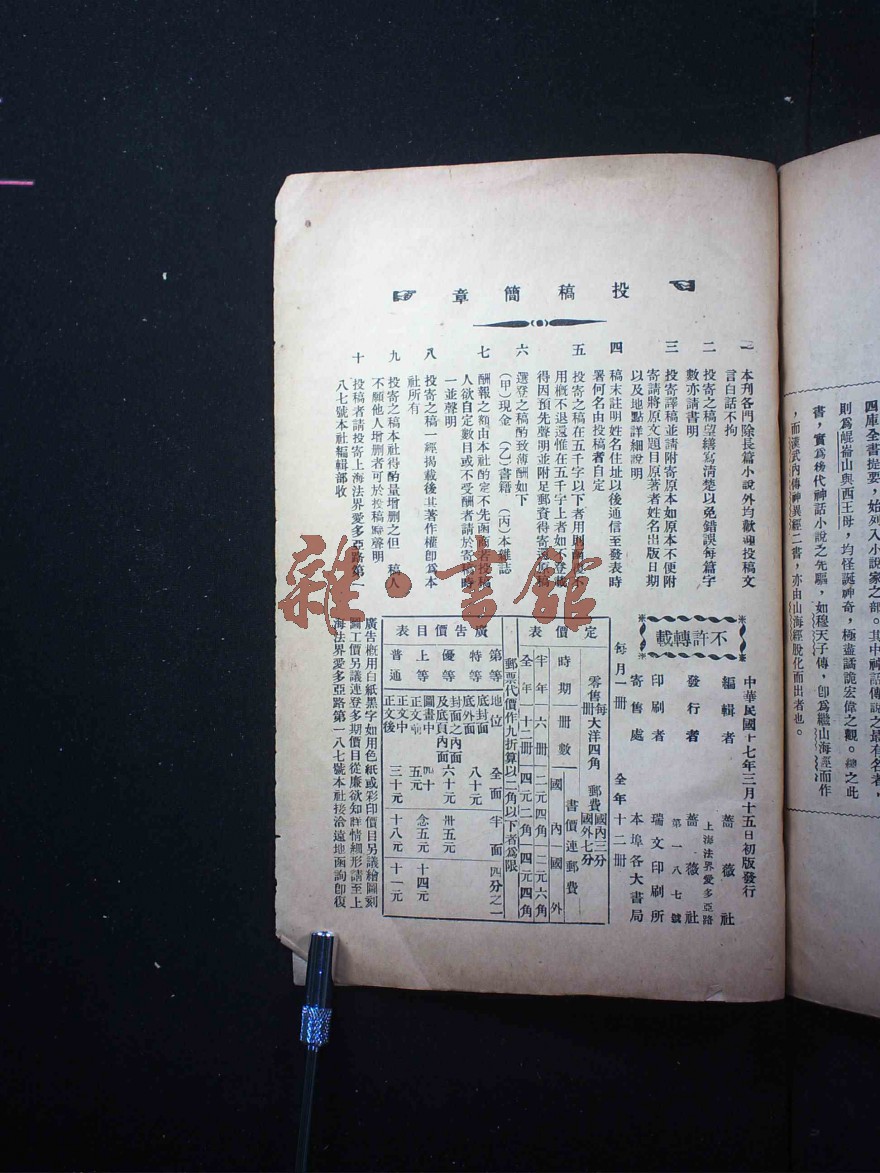 四庫全書提要，始列入小說家之部。其中神話傳說之最有名者，
則爲崐崙山與西王母，均怪誕神奇，極盡譎詭宏偉之觀。總之此
書，實爲後代神話小說之先驅，如穆天子傳，卽爲繼山海經而作
，而漢武內傳神異經二書，亦由山海經脫化而出者也。
投稿簡章
一 本刊各門除長篇小說外均歡迎投稿文
言白話不拘
二 投寄之稿望繕寫清楚以免錯誤每篇字
數亦請書明
三 投寄譯稿並請附寄原本如原本不便附
寄請將原文題目原著者姓名出版日期
以及地點詳細說明
四 稿末註明姓名住址以後通信至發表時
署何名由投稿者自定
五 投寄之稿在五千字以下者用則函
用槪不退還惟在五千字上者如不登
得因預先聲明並附足郵費得寄還原稿
六 選登之稿酌致薄酬如下
(甲)現金 (乙)書籍 (丙)本雜誌
七 酬報之額由本社酌定不先函商若投稿
人欲自定數目或不受酬者請於寄稿時
一並聲明
八 投寄之稿一經揭載後其著作權卽爲本
社所有
九 投寄之稿本社得酌量增删之但 稿人
不願他人增删者可於投稿時聲明
十 投稿者請投寄上海法界愛多亞路第一
八七號本社編輯部收
雜·書館
不許轉載
中華民國十七年三月十五日初版發行
編輯者 薔薇社
發行者 薔薇社
上海法界愛多亞路
第一八七號
印刷者 瑞文印刷所
寄售處 本埠各大書局
每月一冊 全年十二冊
定價表
零售每冊大洋四角 郵費國內三分國外七分
時期 冊數 書價連郵費
國內 國外
半年 六冊 二元四角 二元六角
全年 十二冊 四元二角 四元四角
郵票代價作九折算以二角以下者爲限
廣告價目表
等第 地位 全面 半面 四分之一
特等 底封面 底外面 八十元
優等 封面之內面及底頁內面 六十元 卅五元
上等 圖畫中 正文 四十五元 念五元 十四元
普通 正文中 正文後 三十元 十八元 十一元
廣告槪用白紙黑字如用色紙或彩印價目另議繪圖刻
圖工價另議連登多期價目從廉欲知詳情細形請至上
海法界愛多亞路第一八七號本社接洽遠地函詢卽復